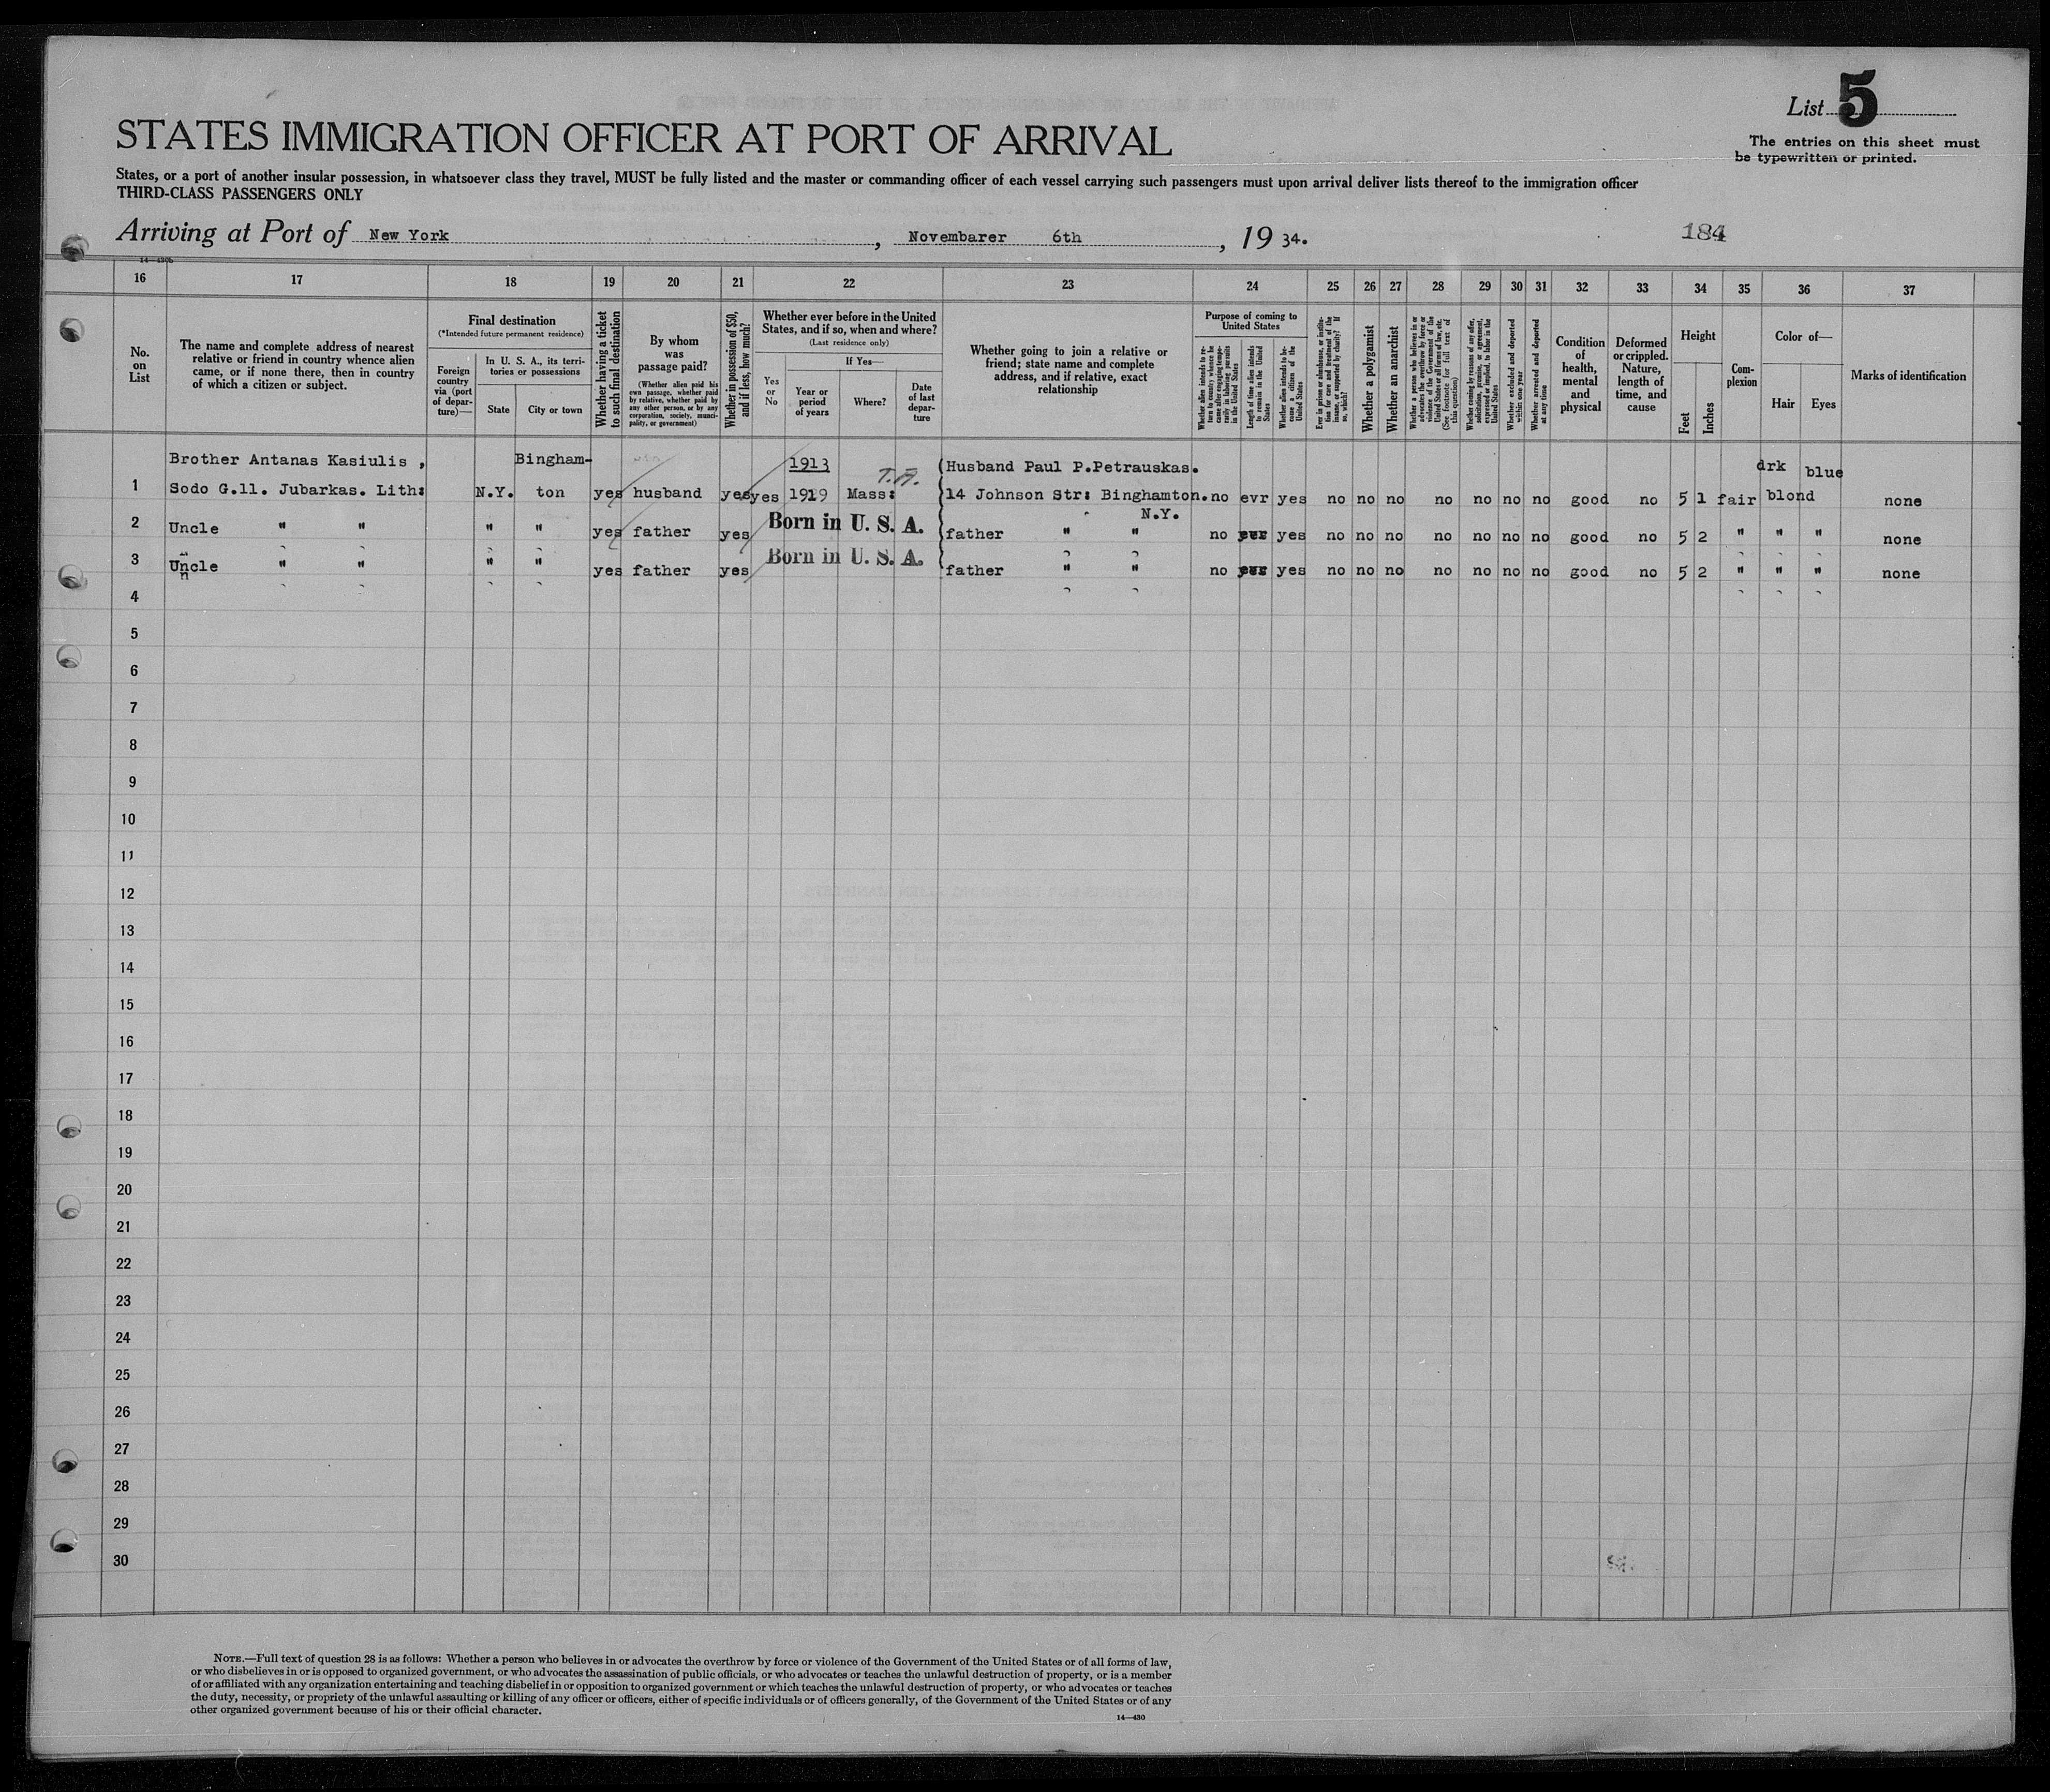 List 5
The entries on this sheet must
be typewritten or printed.
STATES IMMIGRATION OFFICER AT PORT OF ARRIVAL
States, or a port of another insular possession, in whatsoever class they travel, MUST be fully listed and the master or commanding officer of each vessel carrying such passengers must upon arrival deliver lists thereof to the immigration officer
THIRD-CLASS PASSENGERS ONLY
Arriving at Port of New York, Novembarer 6th, 19 34.
184
16 17 18 19 20 21 22 23 24 25 26 27 28 29 30 31 32 33 34 35 36 37
No.
on
List
The name and complete address of nearest
relative or friend in country whence alien
came, or if none there, then in country
of which a citizen or subject.
Final destination
(*Intended future permanent residence)
Foreign
country
via (port
of depar-
ture)—
In U. S. A., its terri-
tories or possessions
State
City or town
Whether having a ticket
to such final destination
By whom
was
passage paid?
(Whether alien paid his
own passage, whether paid
by relative, whether paid by
any other person, or by any
corporation, society, munici-
pality, or government)
Whether in possession of $50,
and if less, how much?
Whether ever before in the United
States, and if so, when and where?
(Last residence only)
Yes
or
No
If Yes—
Year or
period
of years
Where?
Date
of last
depar-
ture
Whether going to join a relative or
friend; state name and complete
address, and if relative, exact
relationship
Purpose of coming to
United States
Whether alien intends to re-
turn to country whence he
came after engaging tempo-
rarily in laboring pursuits
in the United States
Length of time alien intends
to remain in the United
States
Whether alien intends to be-
come a citizen of the
United States
Ever in prison or almshouse, or institu-
tion for care and treatment of the
insane, or supported by charity? If
so, which?
Whether a polygamist
Whether an anarchist
Whether a person who believes in or
advocates the overthrow by force or
violence of the Government of the
United States or all forms of law, etc.
(See footnote for full text of
this question)
Whether coming by reasons of any offer,
solicitation, promise, or agreement,
expressed or implied, to labor in the
United States
Whether excluded and deported
within one year
Whether arrested and deported
at any time
Condition
of
health,
mental
and
physical
Deformed
or crippled.
Nature,
length of
time, and
cause
Height
Feet
Inches
Com-
plexion
Color of—
Hair
Eyes
Marks of identification
Brother Antanas Kasiulis , Bingham- 1913 T.A. (Husband Paul P.Petrauskas. drk blue
1 Sodo G.11. Jubarkas. Lith: N.Y. ton yes husband yes yes 1919 Mass: 14 Johnson Str: Binghamton. no evr yes no no no no no no no good no 5 1 fair blond none
N.Y.
2 Uncle " " " " yes father yes Born in U. S. A. father " " no evr yes no no no no no no no good no 5 2 " " " none
3 Uncle " " " " yes father yes Born in U. S. A. father " " no evr yes no no no no no no no good no 5 2 " " " none
4
5
6
7
8
9
10
11
12
13
14
15
16
17
18
19
20
21
22
23
24
25
26
27
28
29
30
NOTE.—Full text of question 28 is as follows: Whether a person who believes in or advocates the overthrow by force or violence of the Government of the United States or of all forms of law,
or who disbelieves in or is opposed to organized government, or who advocates the assassination of public officials, or who advocates or teaches the unlawful destruction of property, or is a member
of or affiliated with any organization entertaining and teaching disbelief in or opposition to organized government or which teaches the unlawful destruction of property, or who advocates or teaches
the duty, necessity, or propriety of the unlawful assaulting or killing of any officer or officers, either of specific individuals or of officers generally, of the Government of the United States or of any
other organized government because of his or their official character.
14—430